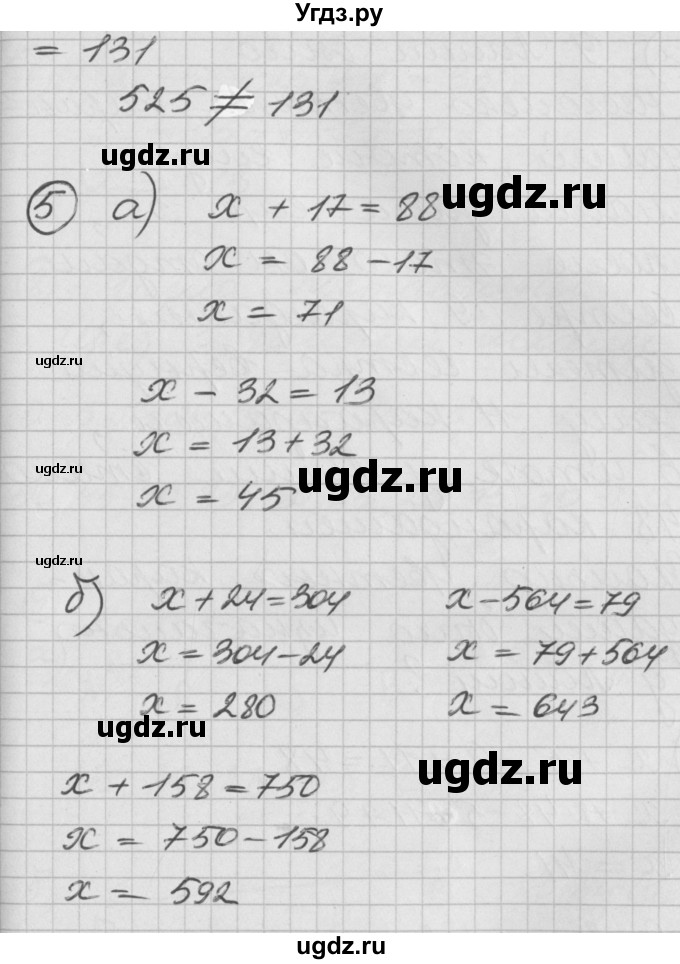 Угдз.ру
= 131
525 ≠ 131
ugdz.ru
5 а) x + 17 = 88
ugdz.ru
x = 88 - 17
x = 71
ugdz.ru
x - 32 = 13
x = 13 + 32
ugdz.ru
ugdz.ru
x = 45
ugdz.ru
б) x + 24 = 304
x = 304 - 24
x = 280
x - 564 = 79
x = 79 + 564
x = 643
ugdz.ru
ugdz.ru
x + 158 = 750
x = 750 - 158
x = 592
ugdz.ru